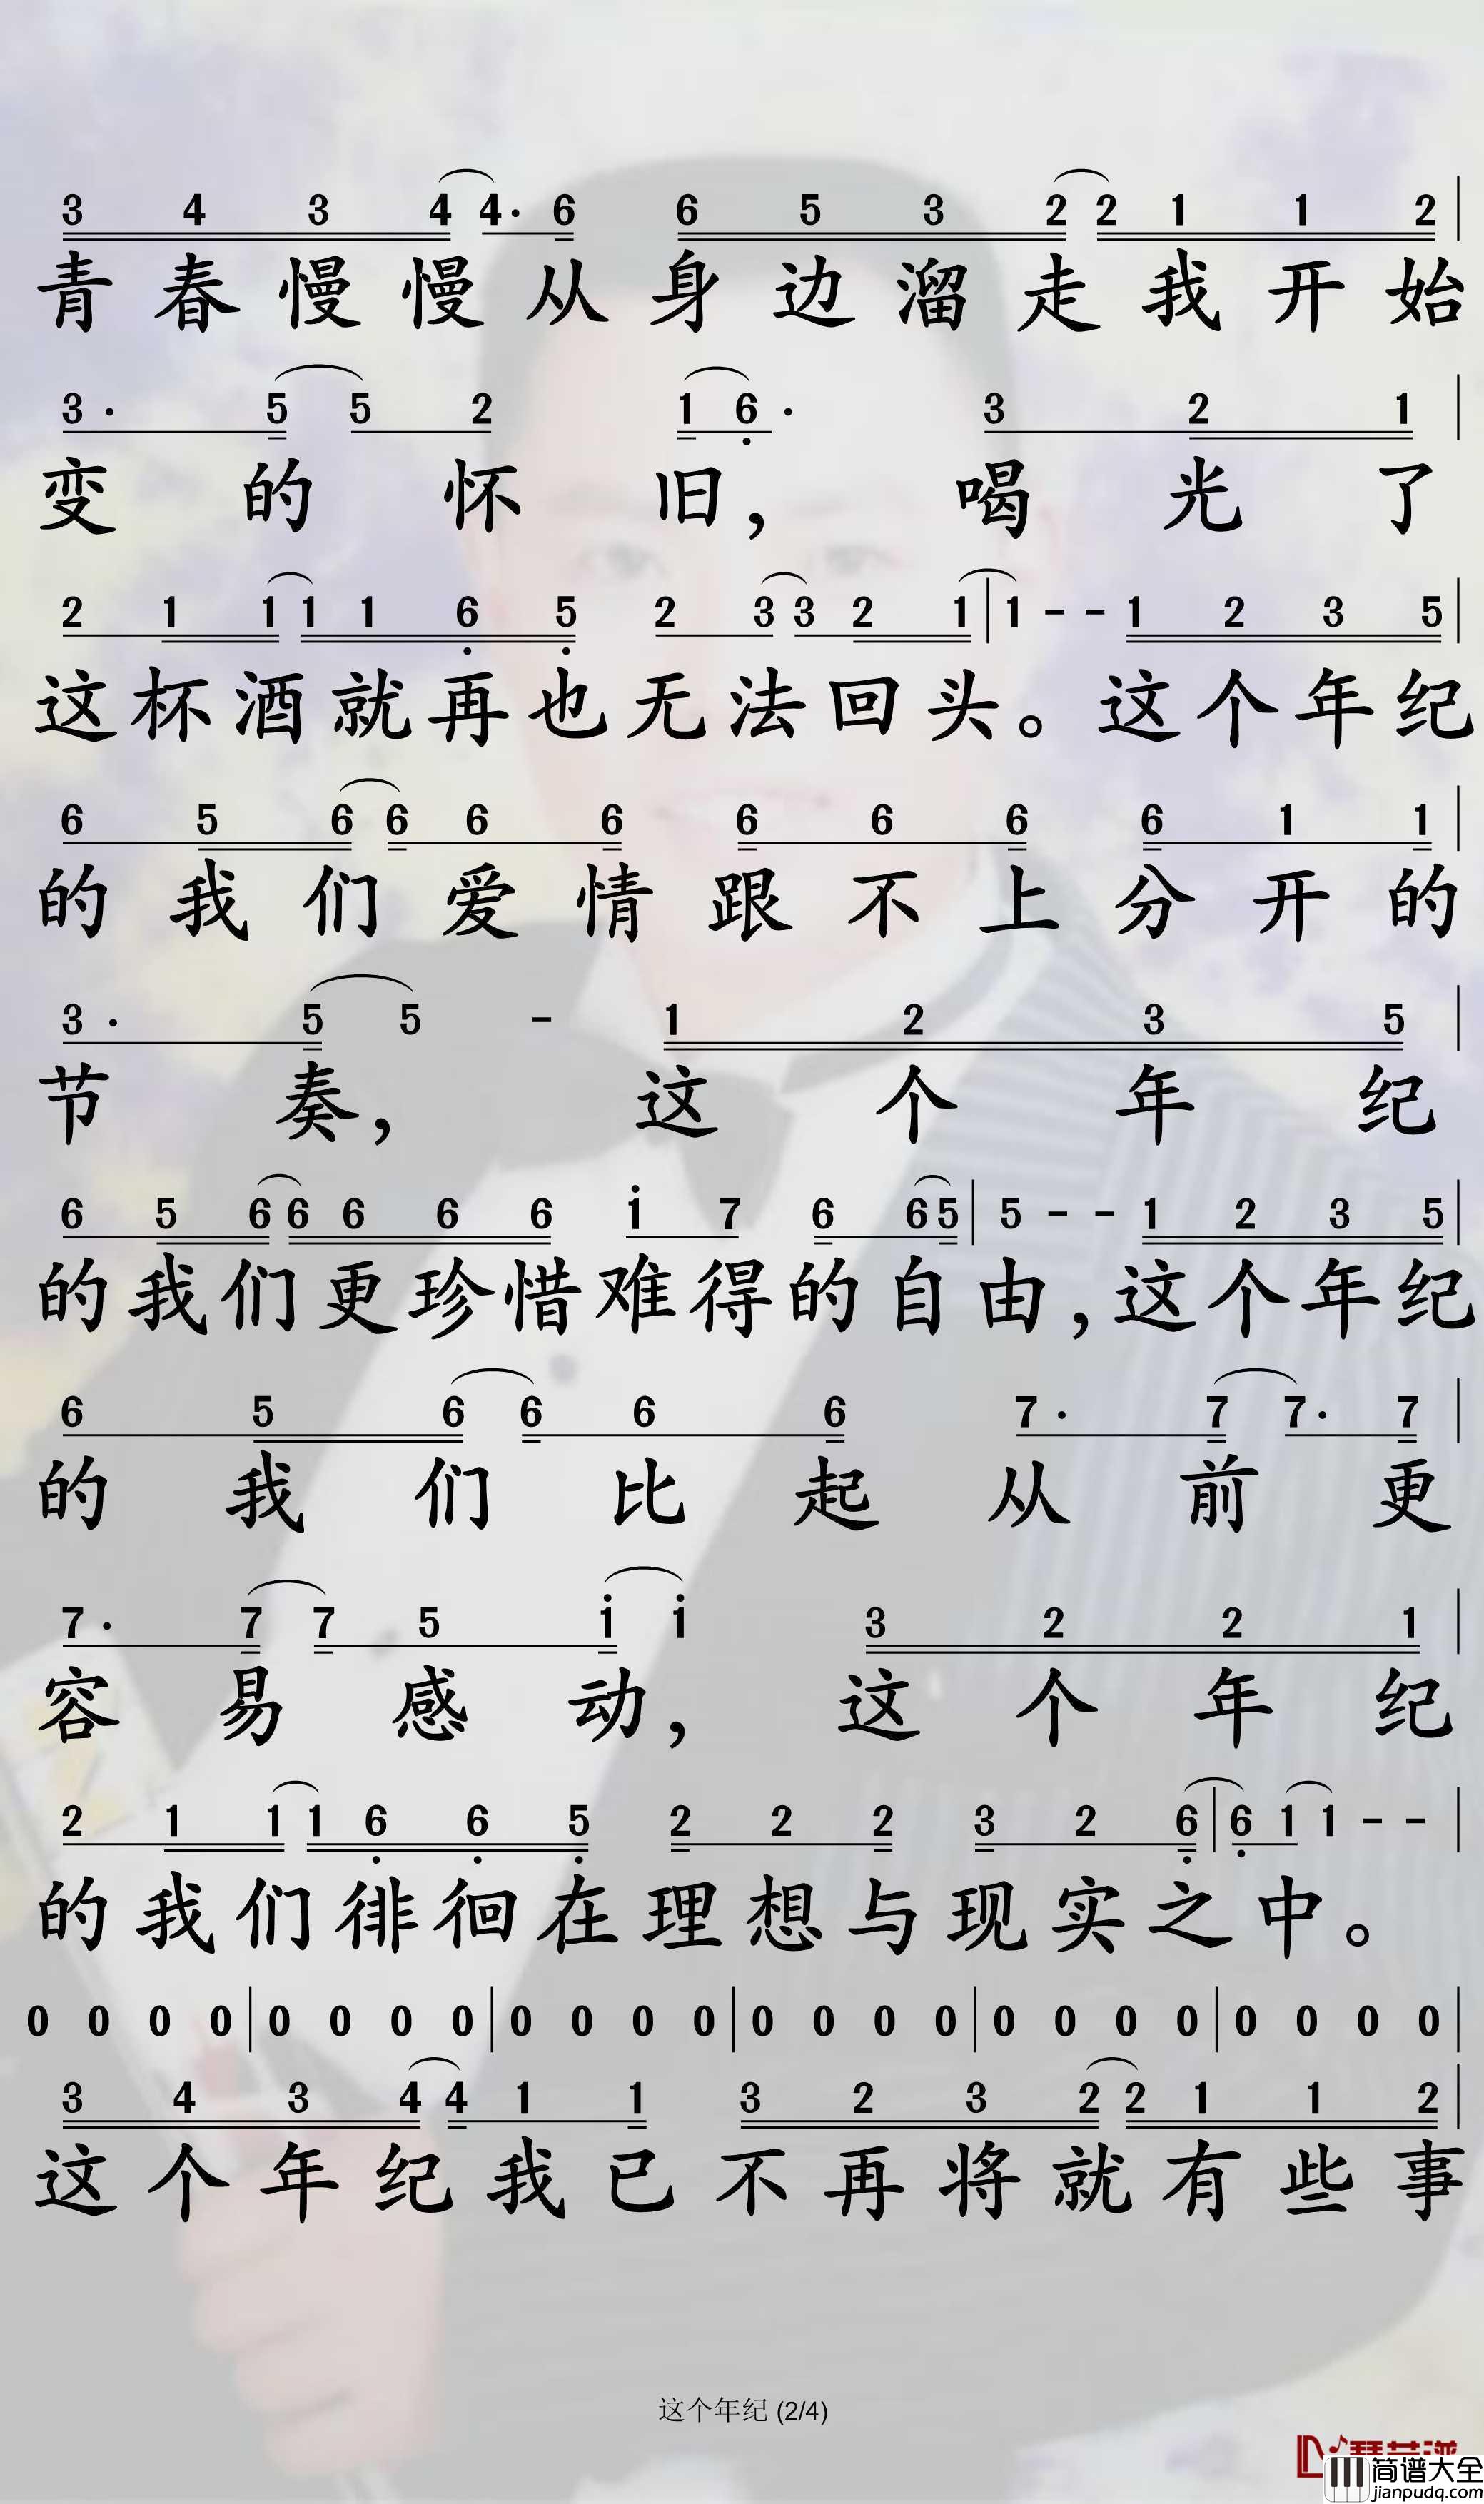 3 4 3 4 4· 6 6 5 3 2 2 1 1 2 |
青春慢慢从身边溜走我开始
3· 5 5 2 1 6· 3 2 1 |
变的怀旧，喝光了
2 1 1 1 1 6 5 2 3 3 2 1 | 1 - - 1 2 3 5 |
这杯酒就再也无法回头。这个年纪
6 5 6 6 6 6 6 6 6 6 1 1 |
的我们爱情跟不上分开的
3· 5 5 - 1 2 3 5 |
节奏，这个年纪
6 5 6 6 6 6 6 i 7 6 6 5 | 5 - - 1 2 3 5 |
的我们更珍惜难得的自由，这个年纪
6 5 6 6 6 6 7· 7 7· 7 |
的我们比起从前更
7· 7 7 5 i i 3 2 2 1 |
容易感动，这个年纪
2 1 1 1 6 6 5 2 2 2 3 2 6 | 6 1 1 - - |
的我们徘徊在理想与现实之中。
0 0 0 0 | 0 0 0 0 | 0 0 0 0 | 0 0 0 0 | 0 0 0 0 | 0 0 0 0 |
3 4 3 4 4 1 1 3 2 3 2 2 1 1 2 |
这个年纪我已不再将就有些事
这个年纪 (2/4)
简谱大全
jianpudq.com